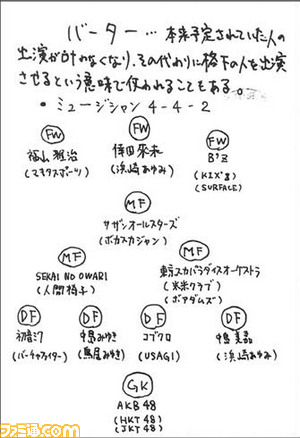 バーター…本来予定されていた人の
出演が叶わなくなり、その代わりに格下の人を出演
させるという意味で使われることもある。
・ミュージシャン 4-4-2
FW FW FW
福山雅治 倖田來未 B'z
(マキタスポーツ) (浜崎あゆみ) (KIX'S)
(SURFACE)
MF
サザンオールスターズ
(ポカスカジャン)
MF MF
SEKAI NO OWARI 東京スカパラダイスオーケストラ
(人間椅子) (米米クラブ)
(ボアダムズ)
DF DF DF DF
初音ミク 中島みゆき コブクロ 中島美嘉
(バーチャファイター) (鳥居みゆき) (USAGI) (浜崎あゆみ)
GK
AKB48
(HKT48)
(JKT48)
ファミ通.com